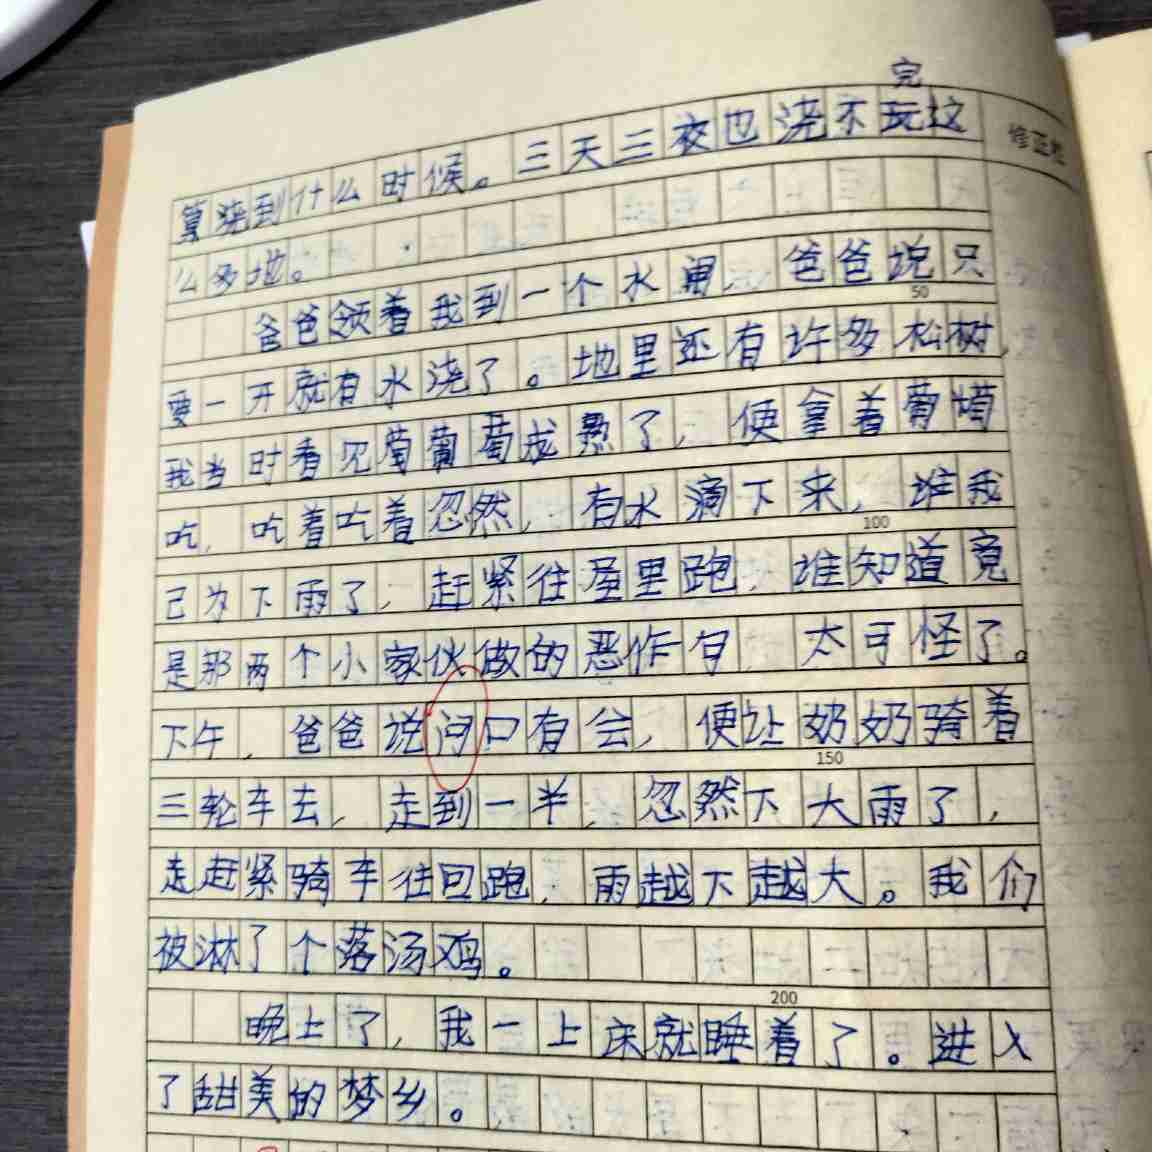 完
算浇到什么时候。三天三夜也浇不玩这
修正栏
么多地。
爸爸领着我到一个水闸,爸爸说只
50
要一开就有水浇了。地里还有许多松树,
我当时看见葡葡萄成熟了,便拿着葡萄
吃,吃着吃着忽然,有水滴下来,谁我
100
己为下雨了,赶紧往屋里跑,谁知道竟
是那两个小家伙做的恶作句,太可怪了。
下午,爸爸说河口有会,便让奶奶骑着
150
三轮车去,走到一半,忽然下大雨了,
走赶紧骑车往回跑,雨越下越大。我们
被淋了个落汤鸡。
200
晚上了,我一上床就睡着了。进入
了甜美的梦乡。